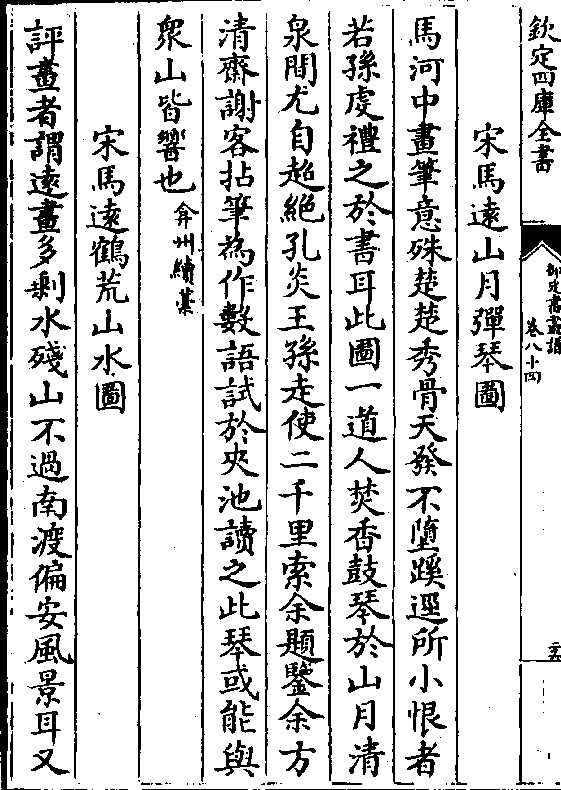 欽定四庫全書
御定書畫譜
卷八十四
宋馬遠山月彈琴圖
馬河中畫筆意殊楚楚秀骨天發不墮蹊逕所小恨者
若孫虔禮之於書耳此圖一道人焚香鼓琴於山月清
泉間尤自超絶孔炎王孫走使二千里索余題鑒余方
清齋謝客拈筆為作數語試於夾池讀之此琴或能與
衆山皆響也弇州續藁
宋馬遠鶴荒山水圖
評畫者謂遠畫多剩水殘山不過南渡偏安風景耳又